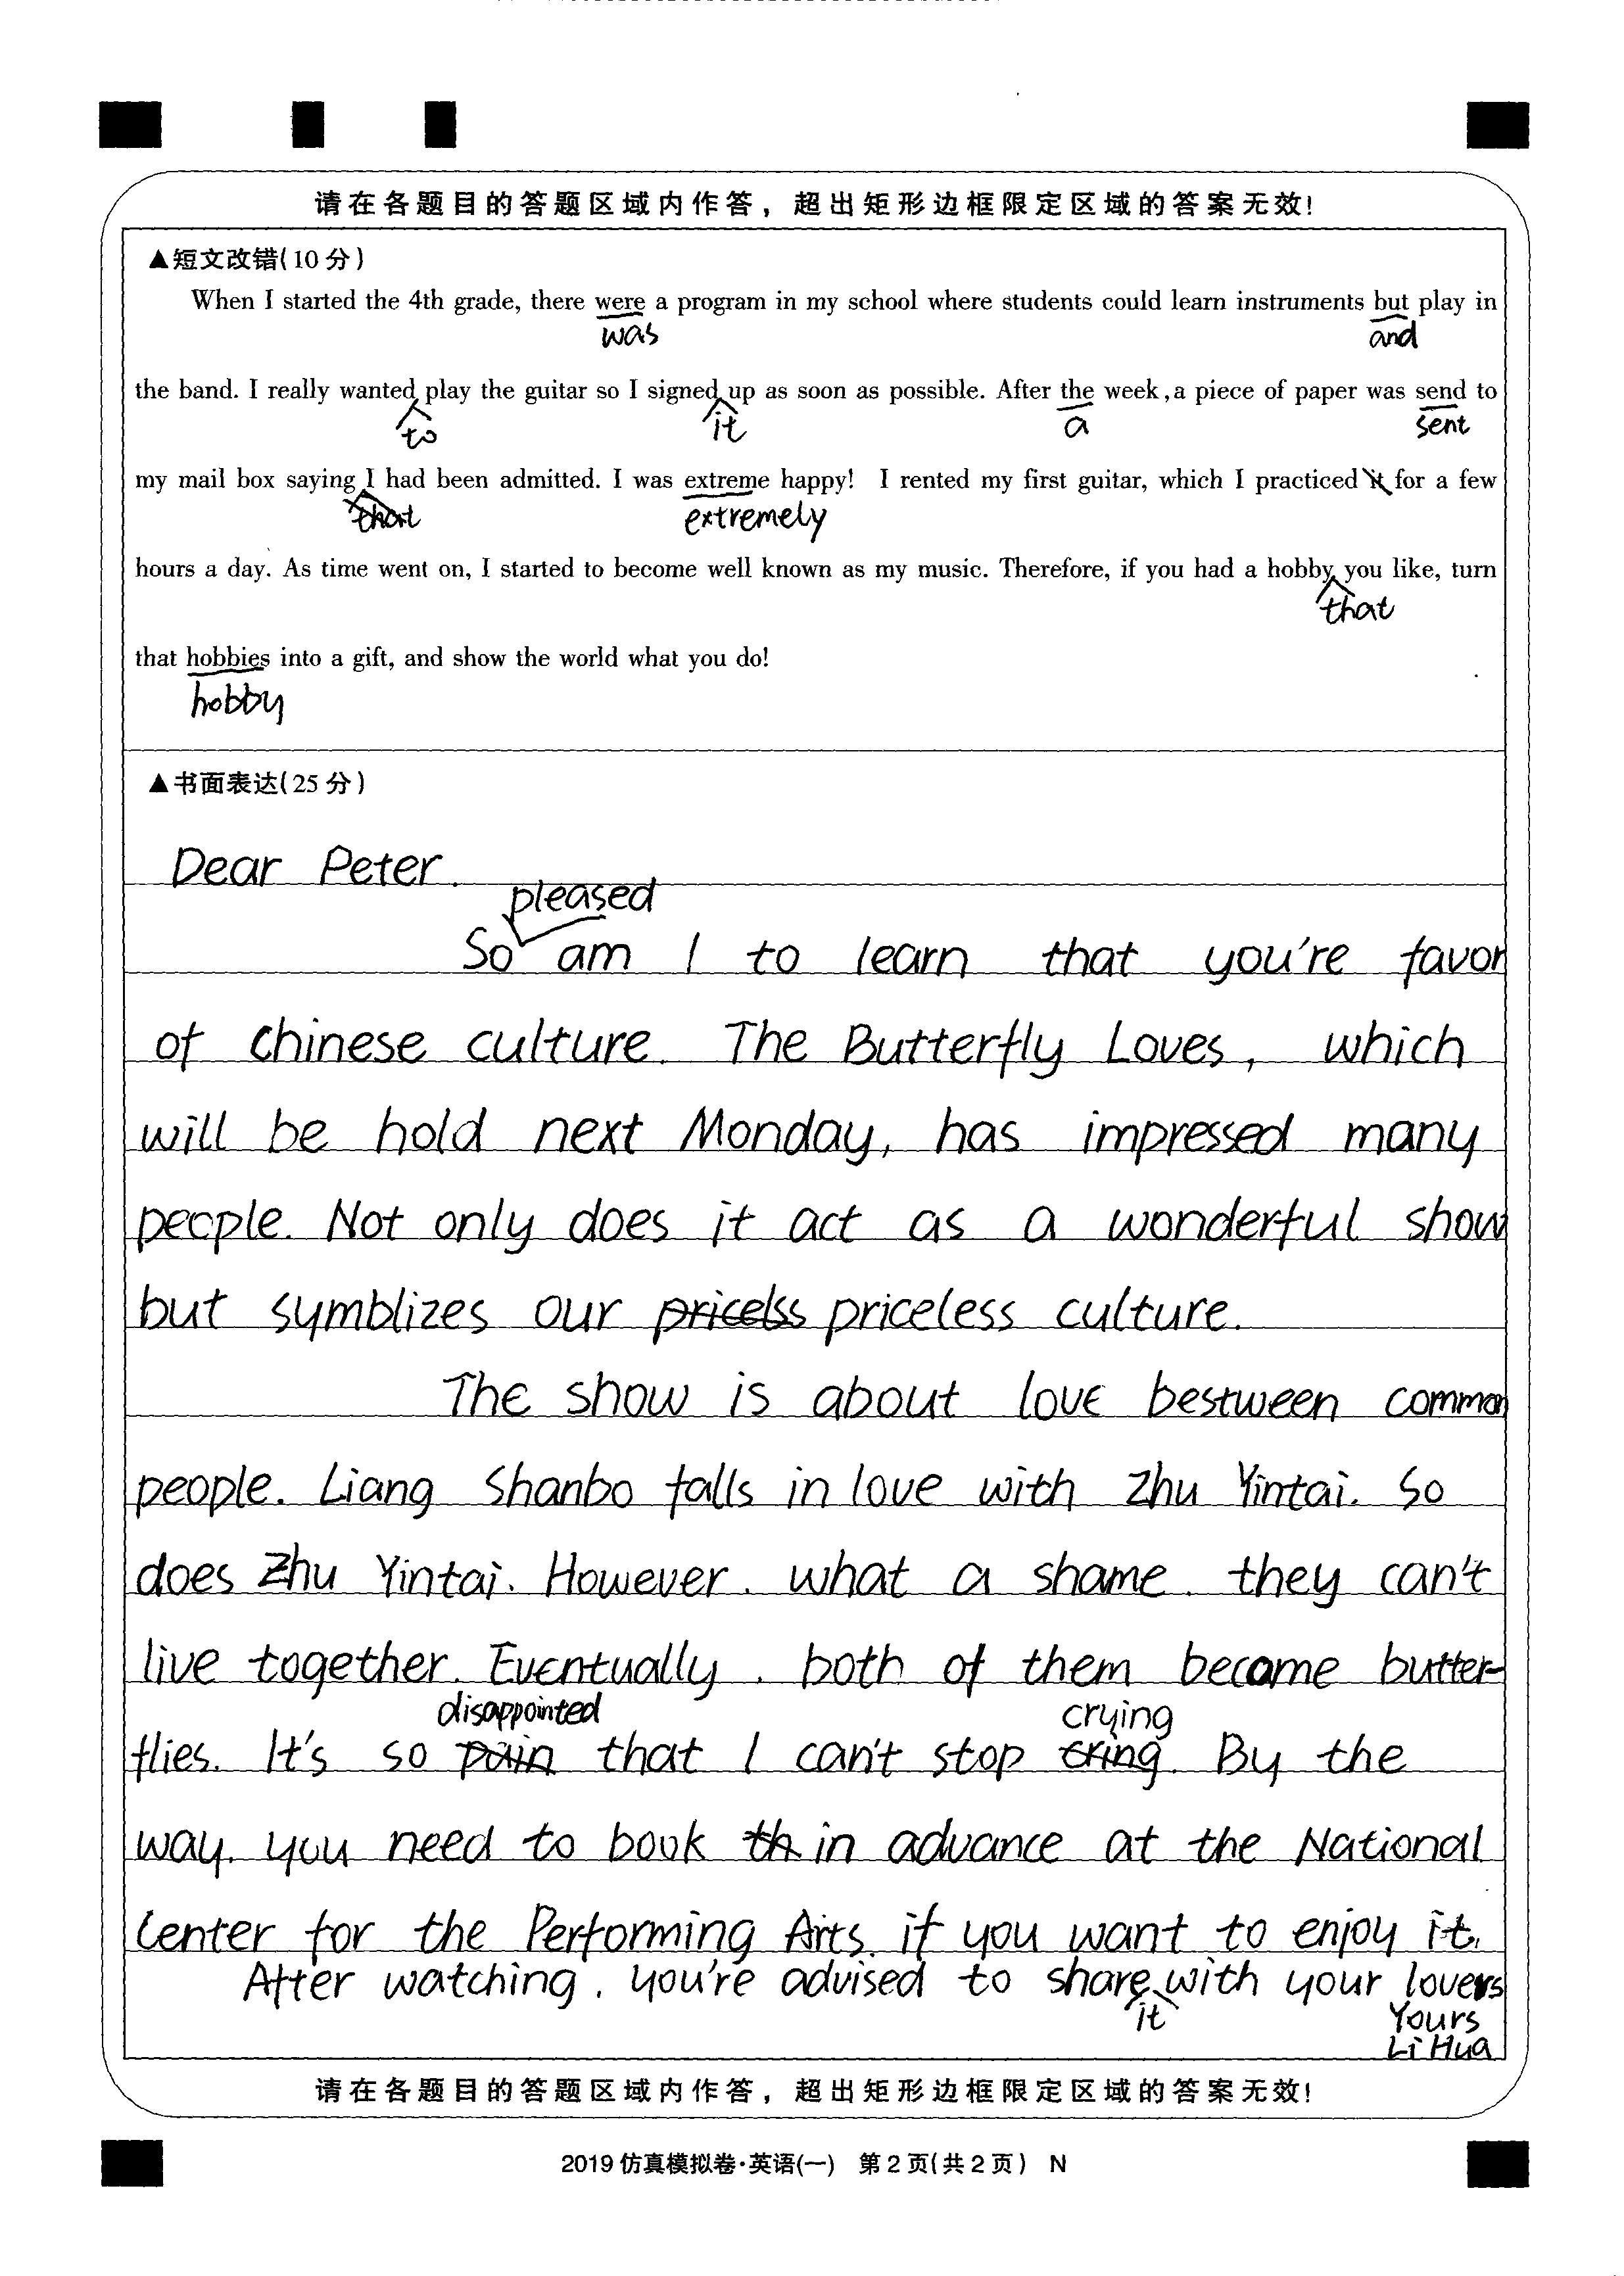 请在各题目的答题区域内作答，超出矩形边框限定区域的答案无效!
▲短文改错(10分)
When I started the 4th grade, there were a program in my school where students could learn instruments but play in
was and
the band. I really wanted play the guitar so I signed up as soon as possible. After the week, a piece of paper was send to
to it a sent
my mail box saying I had been admitted. I was extreme happy! I rented my first guitar, which I practiced it for a few
that extremely
hours a day. As time went on, I started to become well known as my music. Therefore, if you had a hobby you like, turn
that
that hobbies into a gift, and show the world what you do!
hobby
▲书面表达(25分)
Dear Peter.
pleased
So am I to learn that you're favor
of chinese culture. The Butterfly Loves, which
will be hold next Monday, has impressed many
people. Not only does it act as a wonderful show
but symblizes our pricelss priceless culture.
The show is about love bestween common
people. Liang Shanbo falls in love with Zhu Yintai. So
does Zhu Yintai. However. what a shame. they can't
live together. Eventually. both of them become butter-
disappointed crying
flies. It's so pain that I can't stop cring. By the
way. you need to book th in advance at the National
Center for the Performing Arts. if you want to enjoy it.
After watching. you're advised to share with your lovers
it Yours
Li Hua
请在各题目的答题区域内作答，超出矩形边框限定区域的答案无效!
2019仿真模拟卷·英语(一) 第2页(共2页) N